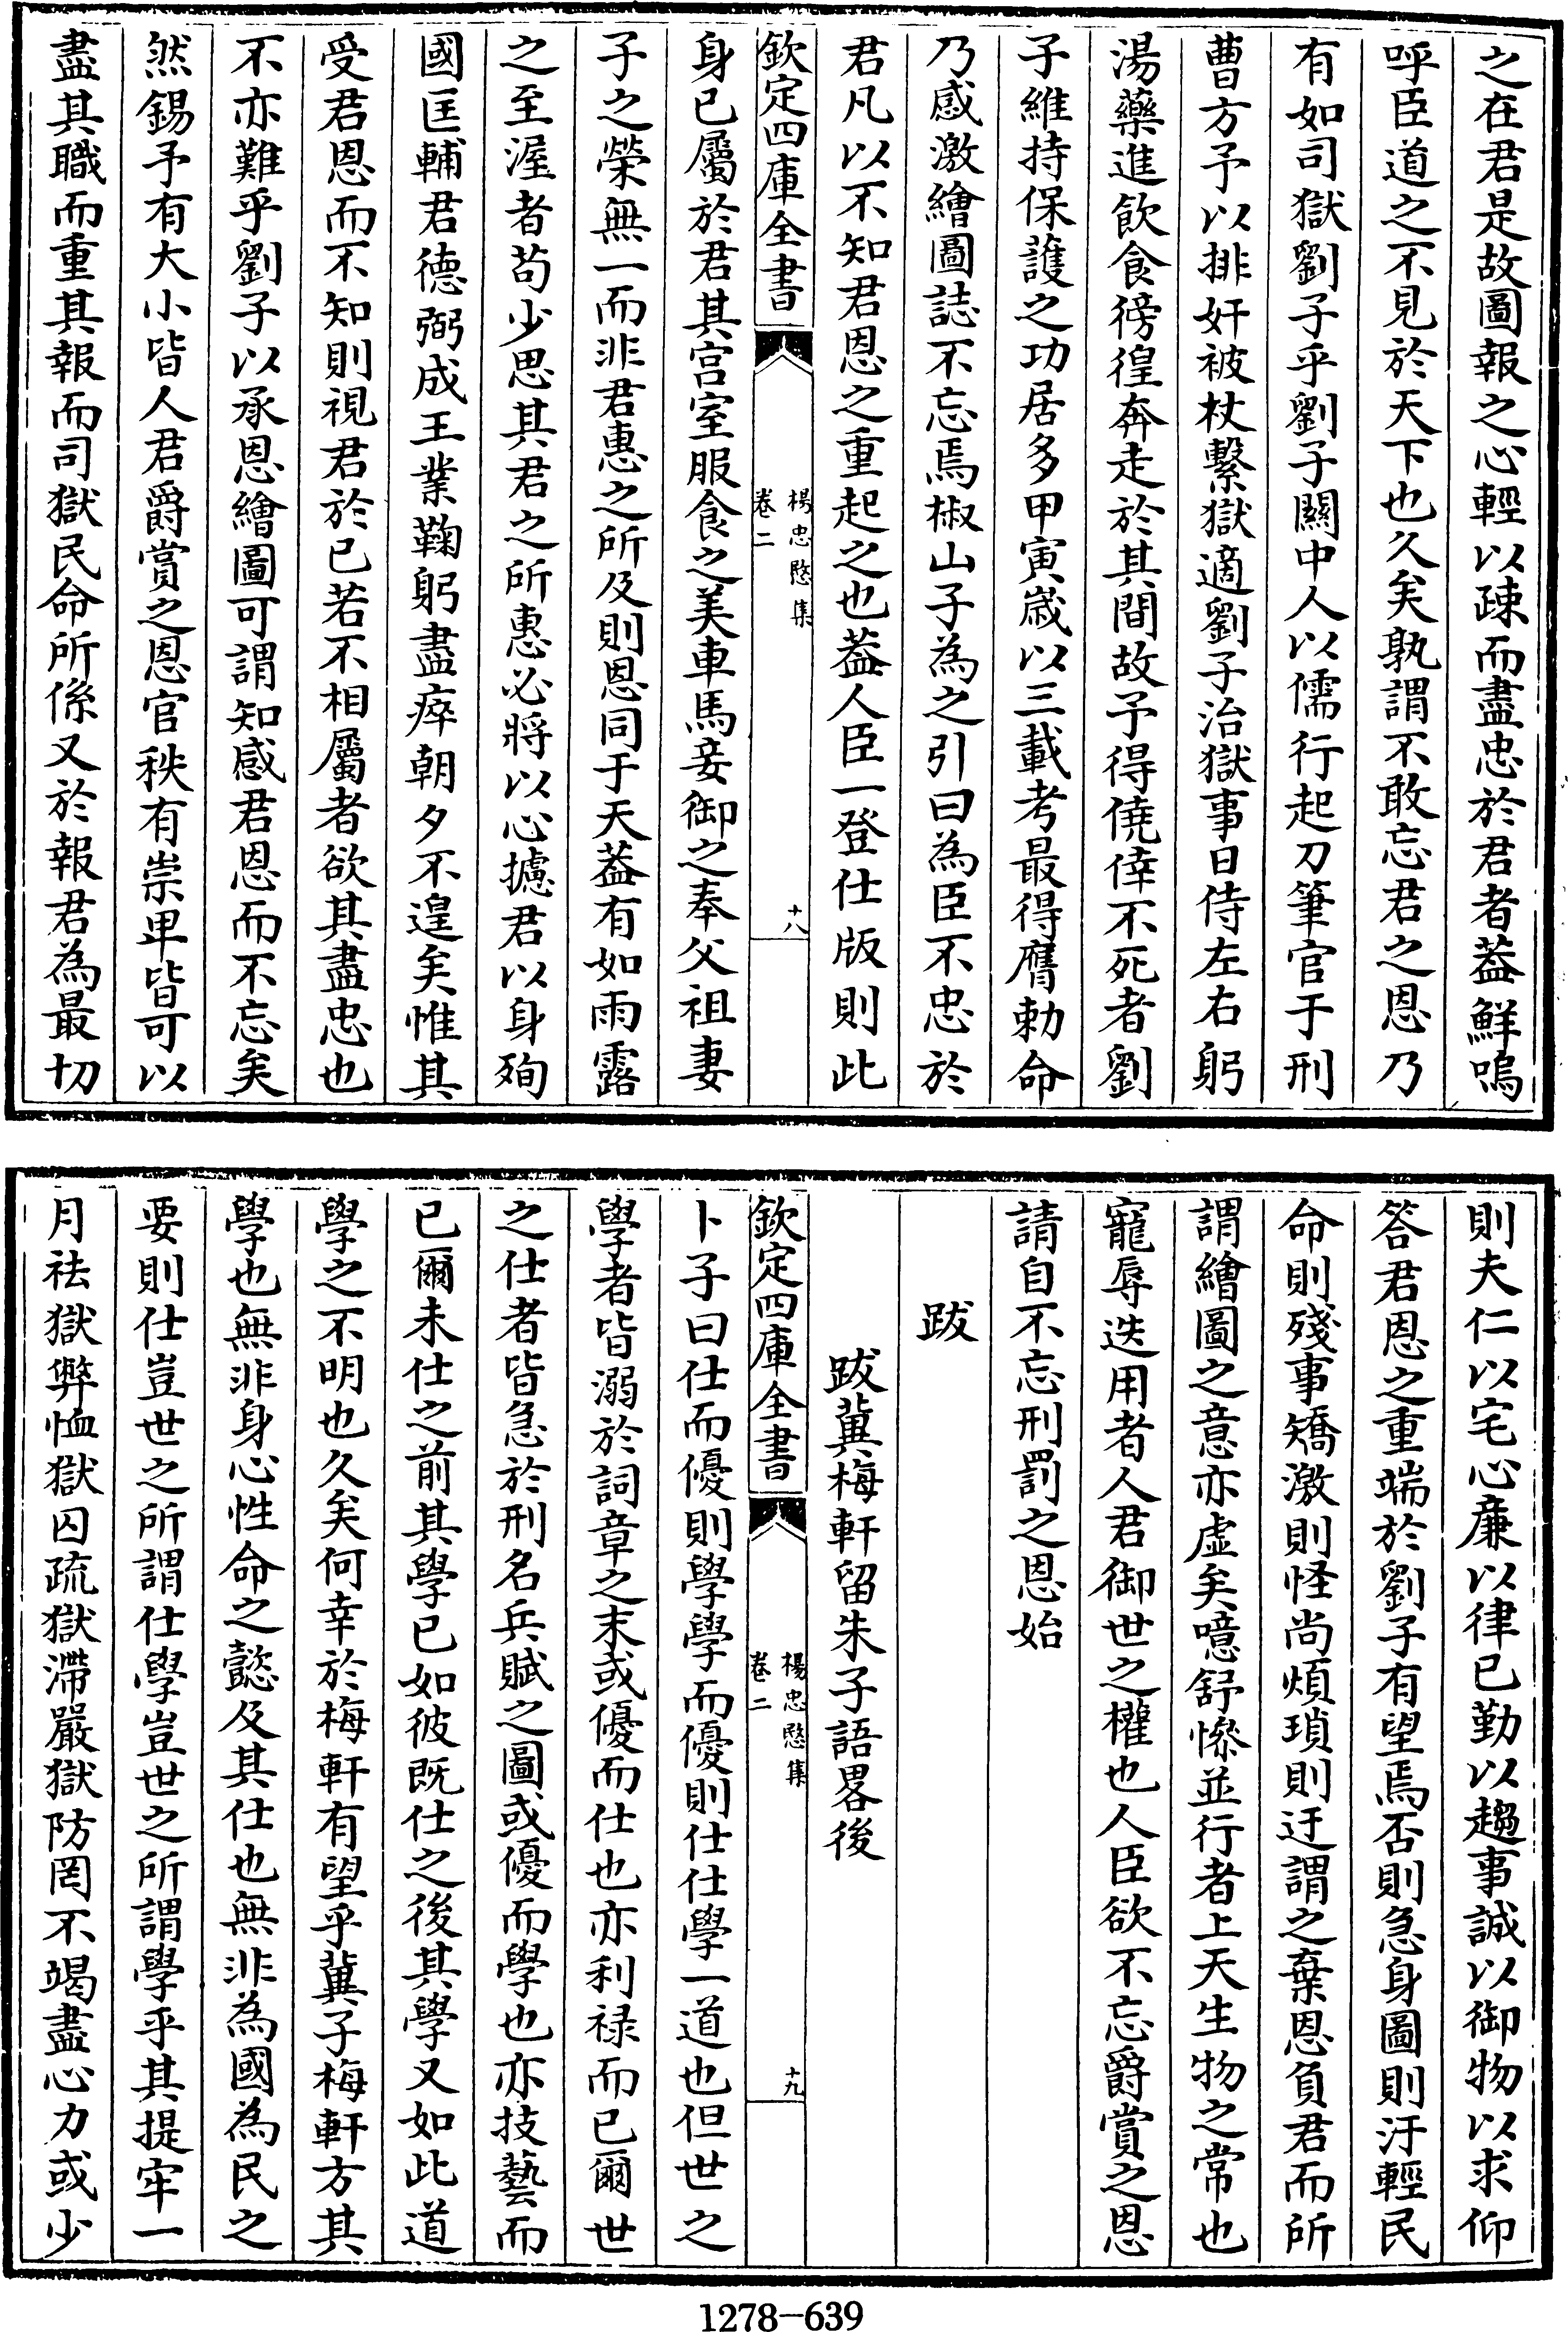 之在君是故圖報之心輕以疎而盡忠於君者葢鮮嗚
呼臣道之不見於天下也久矣孰謂不敢忘君之恩乃
有如司獄劉子乎劉子關中人以儒行起刀筆官于刑
曹方予以排奸被杖繫獄適劉子治獄事日侍左右躬
湯藥進飲食徬徨奔走於其間故予得僥倖不死者劉
子維持保護之功居多甲寅嵗以三載考最得膺勅命
乃感激繪圖誌不忘焉椒山子為之引曰為臣不忠於
君凡以不知君恩之重起之也葢人臣一登仕版則此
欽定四庫全書
楊忠愍集
卷二
十八
身已屬於君其宫室服食之美車馬妾御之奉父祖妻
子之榮無一而非君惠之所及則恩同于天葢有如雨露
之至渥者苟少思其君之所惠必將以心攄君以身殉
國匡輔君德弼成王業鞠躬盡瘁朝夕不遑矣惟其
受君恩而不知則視君於已若不相屬者欲其盡忠也
不亦難乎劉子以承恩繪圖可謂知感君恩而不忘矣
然錫予有大小皆人君爵賞之恩官秩有崇卑皆可以
盡其職而重其報而司獄民命所係又於報君為最切
則夫仁以宅心亷以律已勤以趨事誠以御物以求仰
答君恩之重端於劉子有望焉否則急身圖則汙輕民
命則殘事矯激則怪尚煩瑣則迂謂之棄恩負君而所
謂繪圖之意亦虚矣噫舒慘並行者上天生物之常也
寵辱迭用者人君御世之權也人臣欲不忘爵賞之恩
請自不忘刑罰之恩始
跋
跋冀梅軒留朱子語畧後
欽定四庫全書
楊忠愍集
卷二
十九
卜子曰仕而優則學學而優則仕仕學一道也但世之
學者皆溺於詞章之末或優而仕也亦利禄而已爾世
之仕者皆急於刑名兵賦之圖或優而學也亦技藝而
已爾未仕之前其學已如彼既仕之後其學又如此道
學之不明也久矣何幸於梅軒有望乎冀子梅軒方其
學也無非身心性命之懿及其仕也無非為國為民之
要則仕豈世之所謂仕學豈世之所謂學乎其提牢一
月祛獄弊恤獄囚疏獄滯嚴獄防罔不竭盡心力或少
1278-639